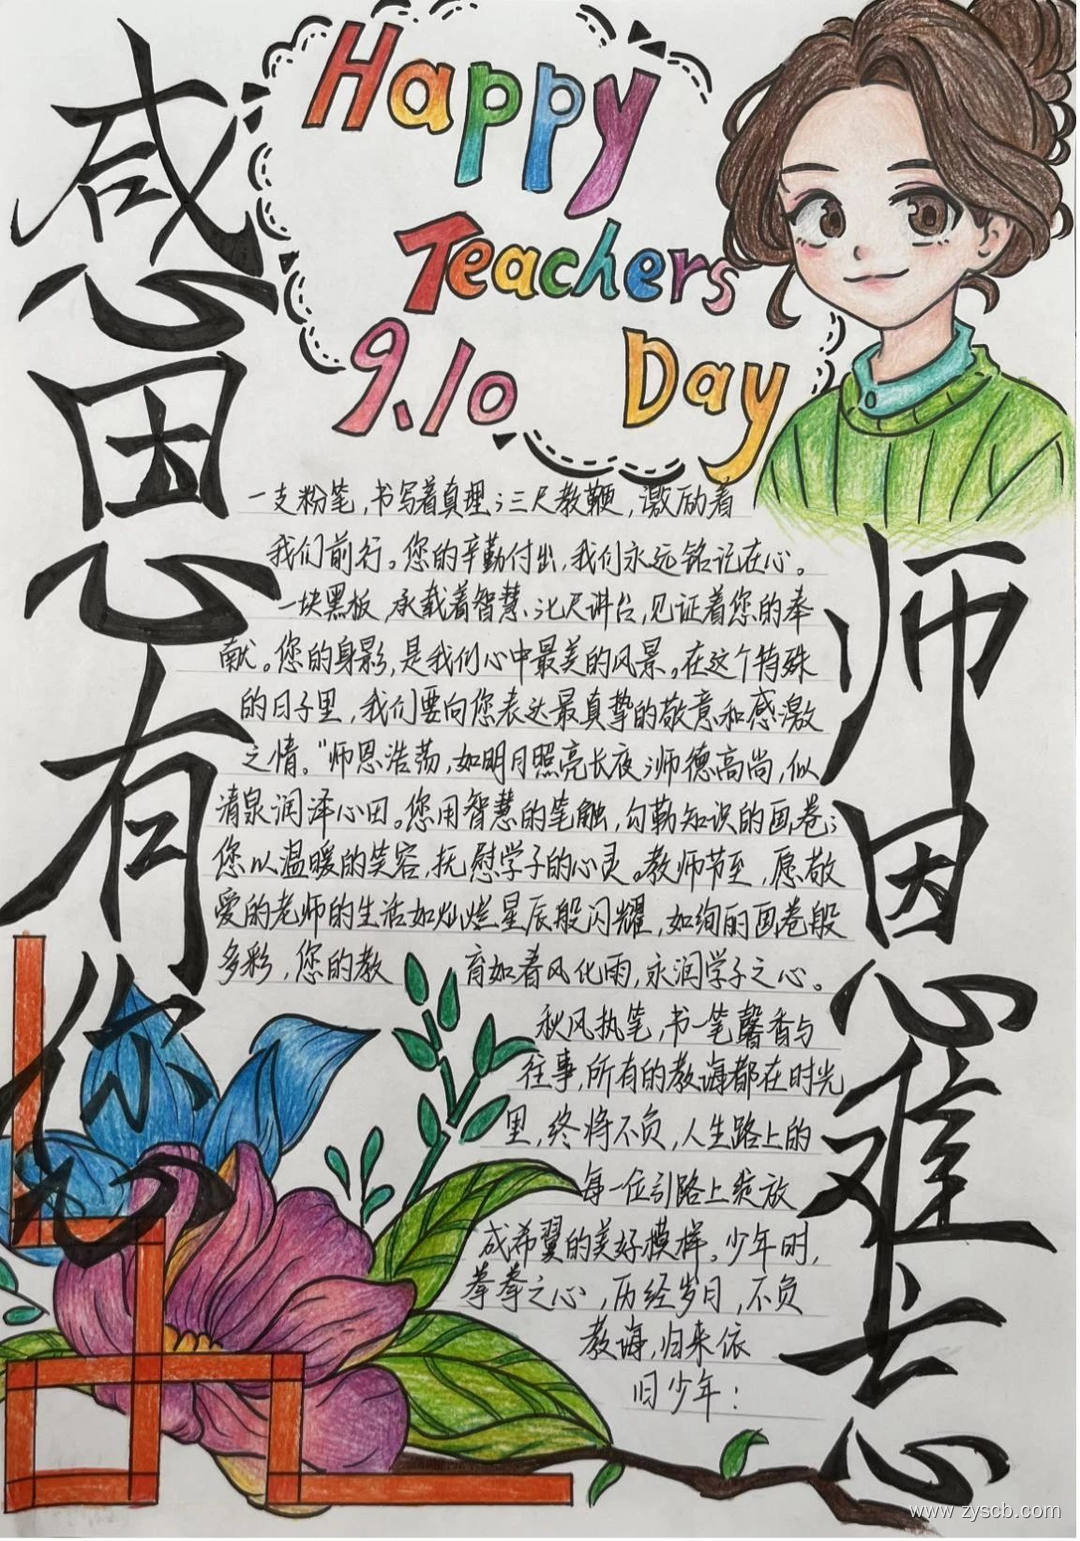 感恩有你
Happy
Teachers
9.10 Day
一支粉笔,书写着真理;三尺教鞭,激励着
我们前行。您的辛勤付出,我们永远铭记在心。
一块黑板,承载着智慧;七尺讲台,见证着您的奉
献。您的身影,是我们心中最美的风景。在这个特殊
的日子里,我们要向您表达最真挚的敬意和感激
之情。"师恩浩荡,如明月照亮长夜;师德高尚,似
清泉润泽心田。您用智慧的笔触,勾勒知识的画卷;
您以温暖的笑容,抚慰学子的心灵。教师节至,愿敬
爱的老师的生活如灿烂星辰般闪耀,如绚丽画卷般
多彩,您的教育如春风化雨,永润学子之心。
秋风执笔,书一笔馨香与
往事,所有的教诲都在时光
里,终将不负,人生路上的
每一位引路上绽放
成希翼的美好模样。少年时,
拳拳之心,历经岁月,不负
教诲,归来依
旧少年:
师恩难忘
www.zyscb.com